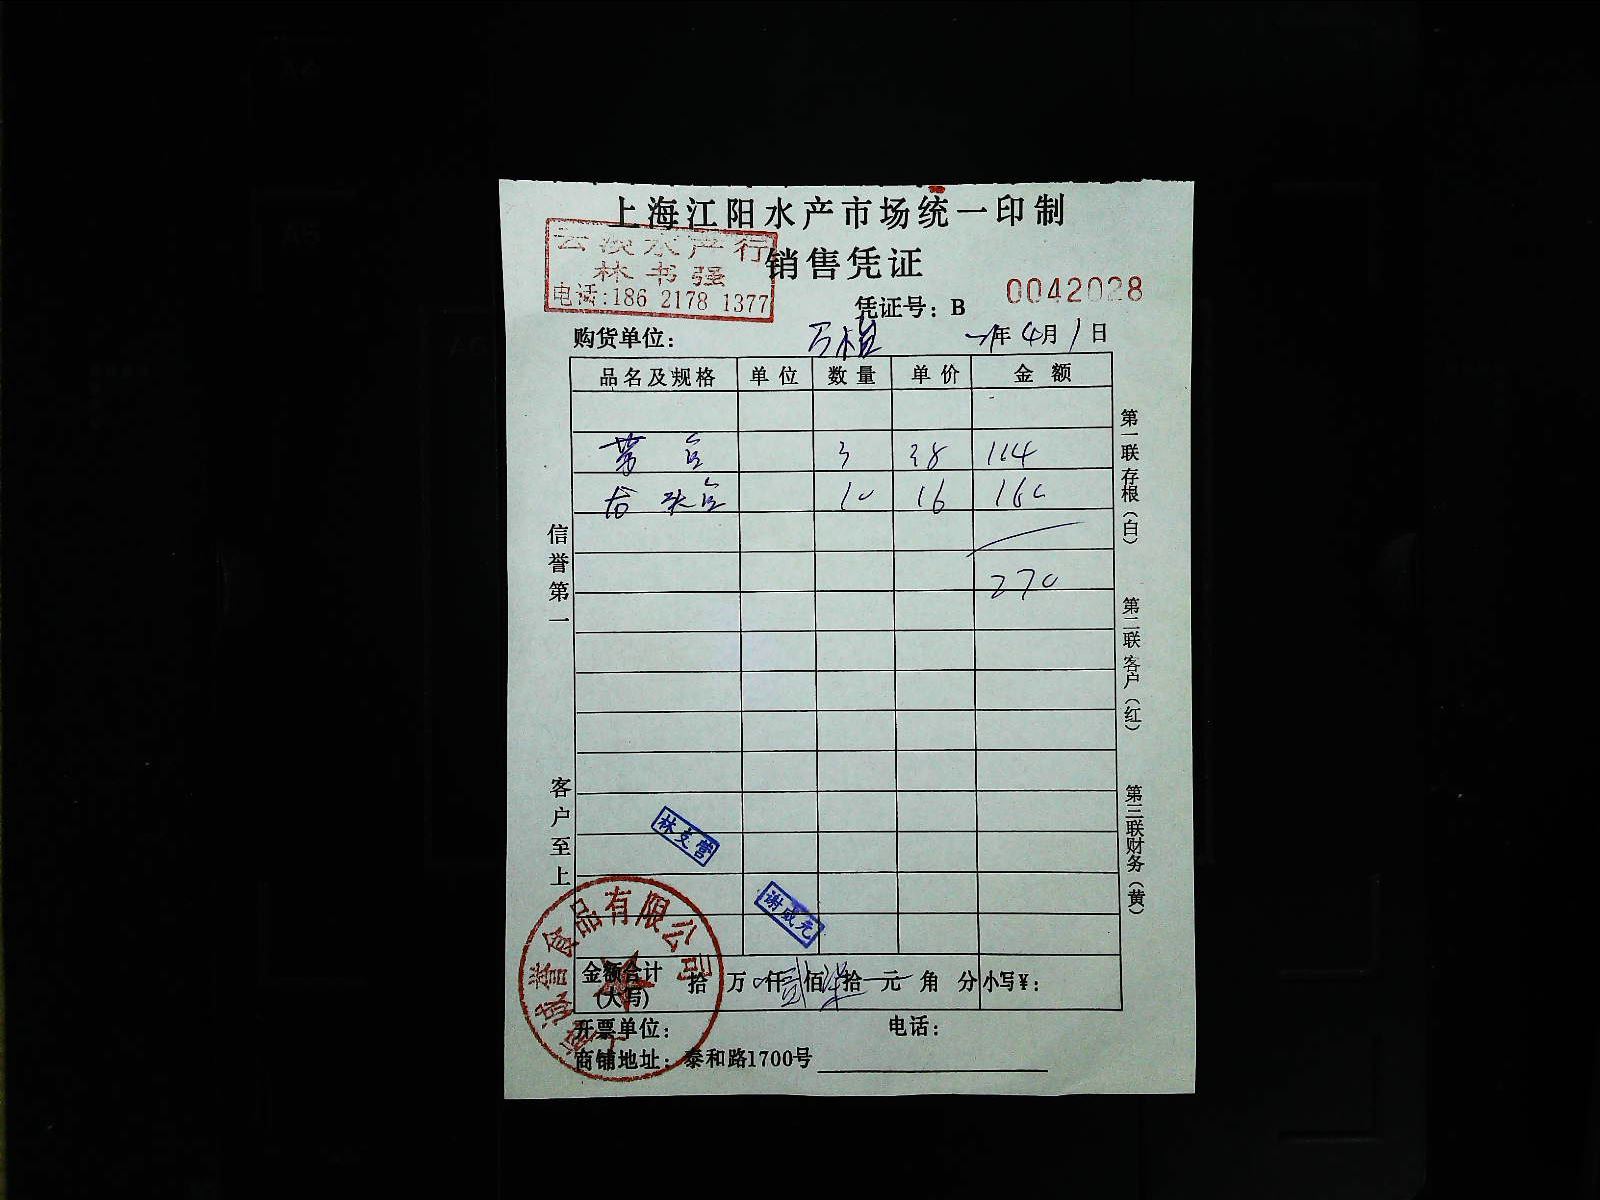 上海江阳水产市场统一印制
云淡水产行
林书强
电话:186 2178 1377
销售凭证
凭证号：B 0042028
购货单位： 年 4月 1日
品名及规格 单位 数量 单价 金额
3 38 114
10 16 160
270
信誉第一
客户至上
第一联存根（白）
第二联客户（红）
第三联财务（黄）
林支营
谢成元
誉食品有限公司
金额合计（大写） 拾 万 仟 贰佰 柒拾 元 角 分 小写¥：
开票单位： 电话：
商铺地址：泰和路1700号